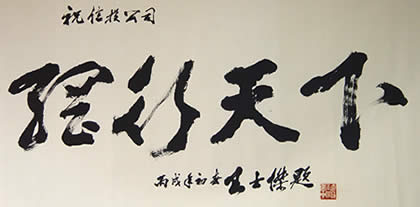 祝信投公司
行天下
丙戌年初春王士傑题